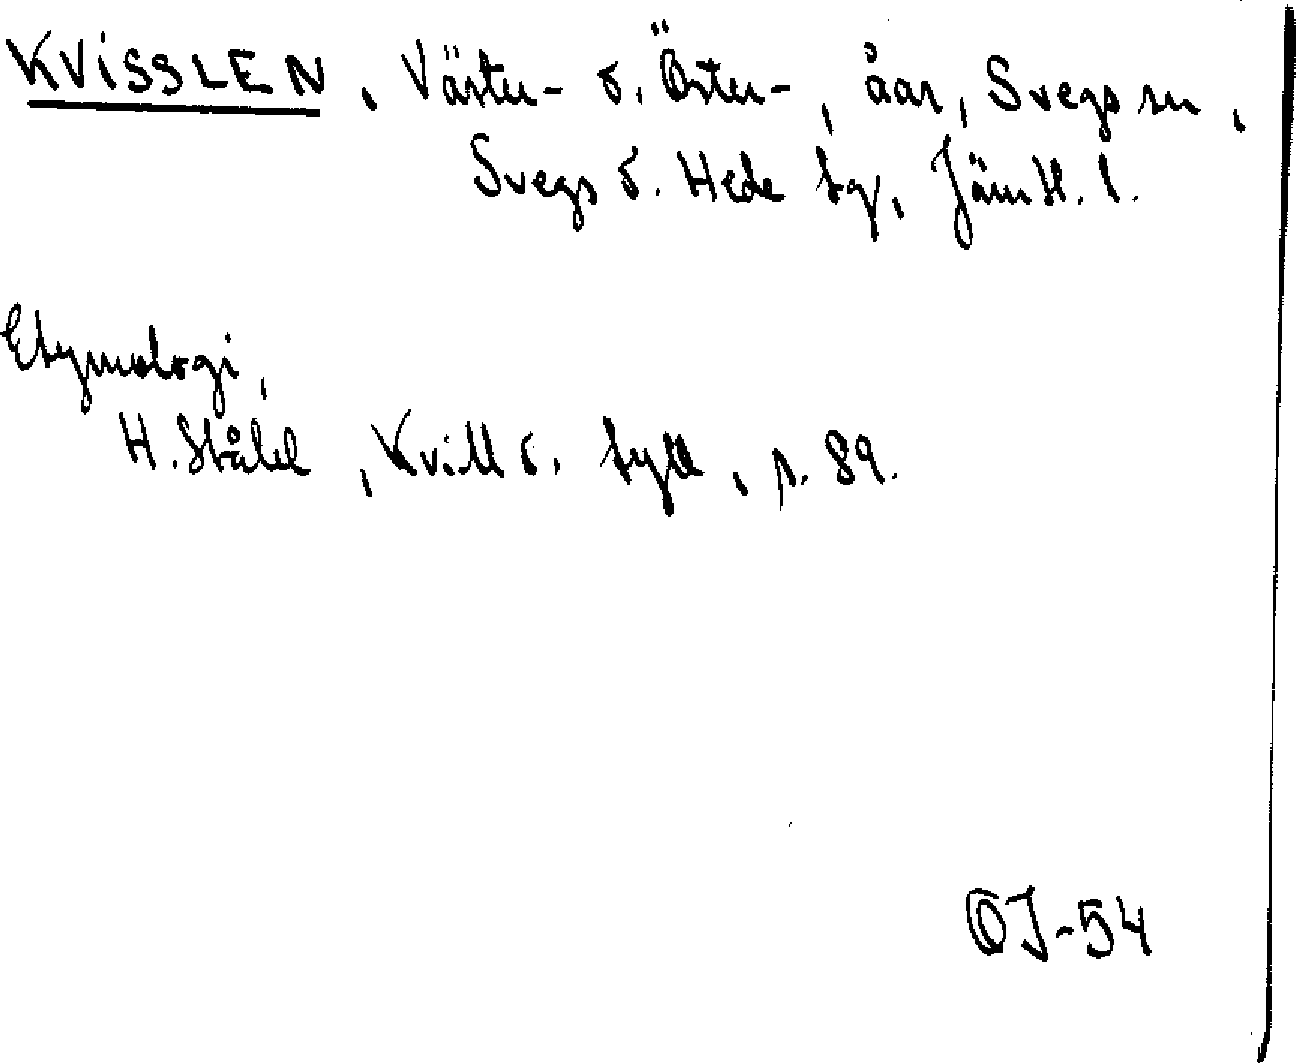 KVISSLEN, Väster- o. Öster-, åar, Svegs sn,
Svegs o. Hede tg, Jämtl. l.
Etymologi,
H. Ståhl, Kvill o. tyll, s. 89.
OJ-54